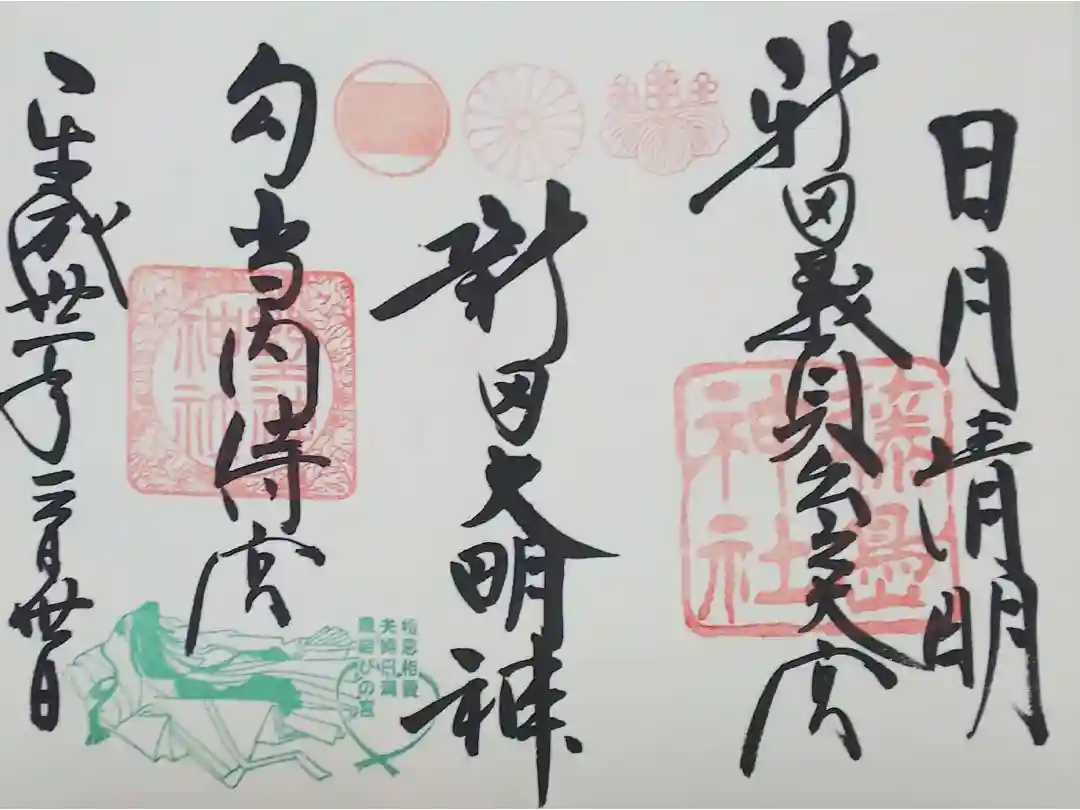 日月清明
新田義貞公
宮
新田大明神
勾当内侍宮
平成丗一年
月丗日
藤島
神社
神社
相思相愛
夫婦円満
縁結びの宮